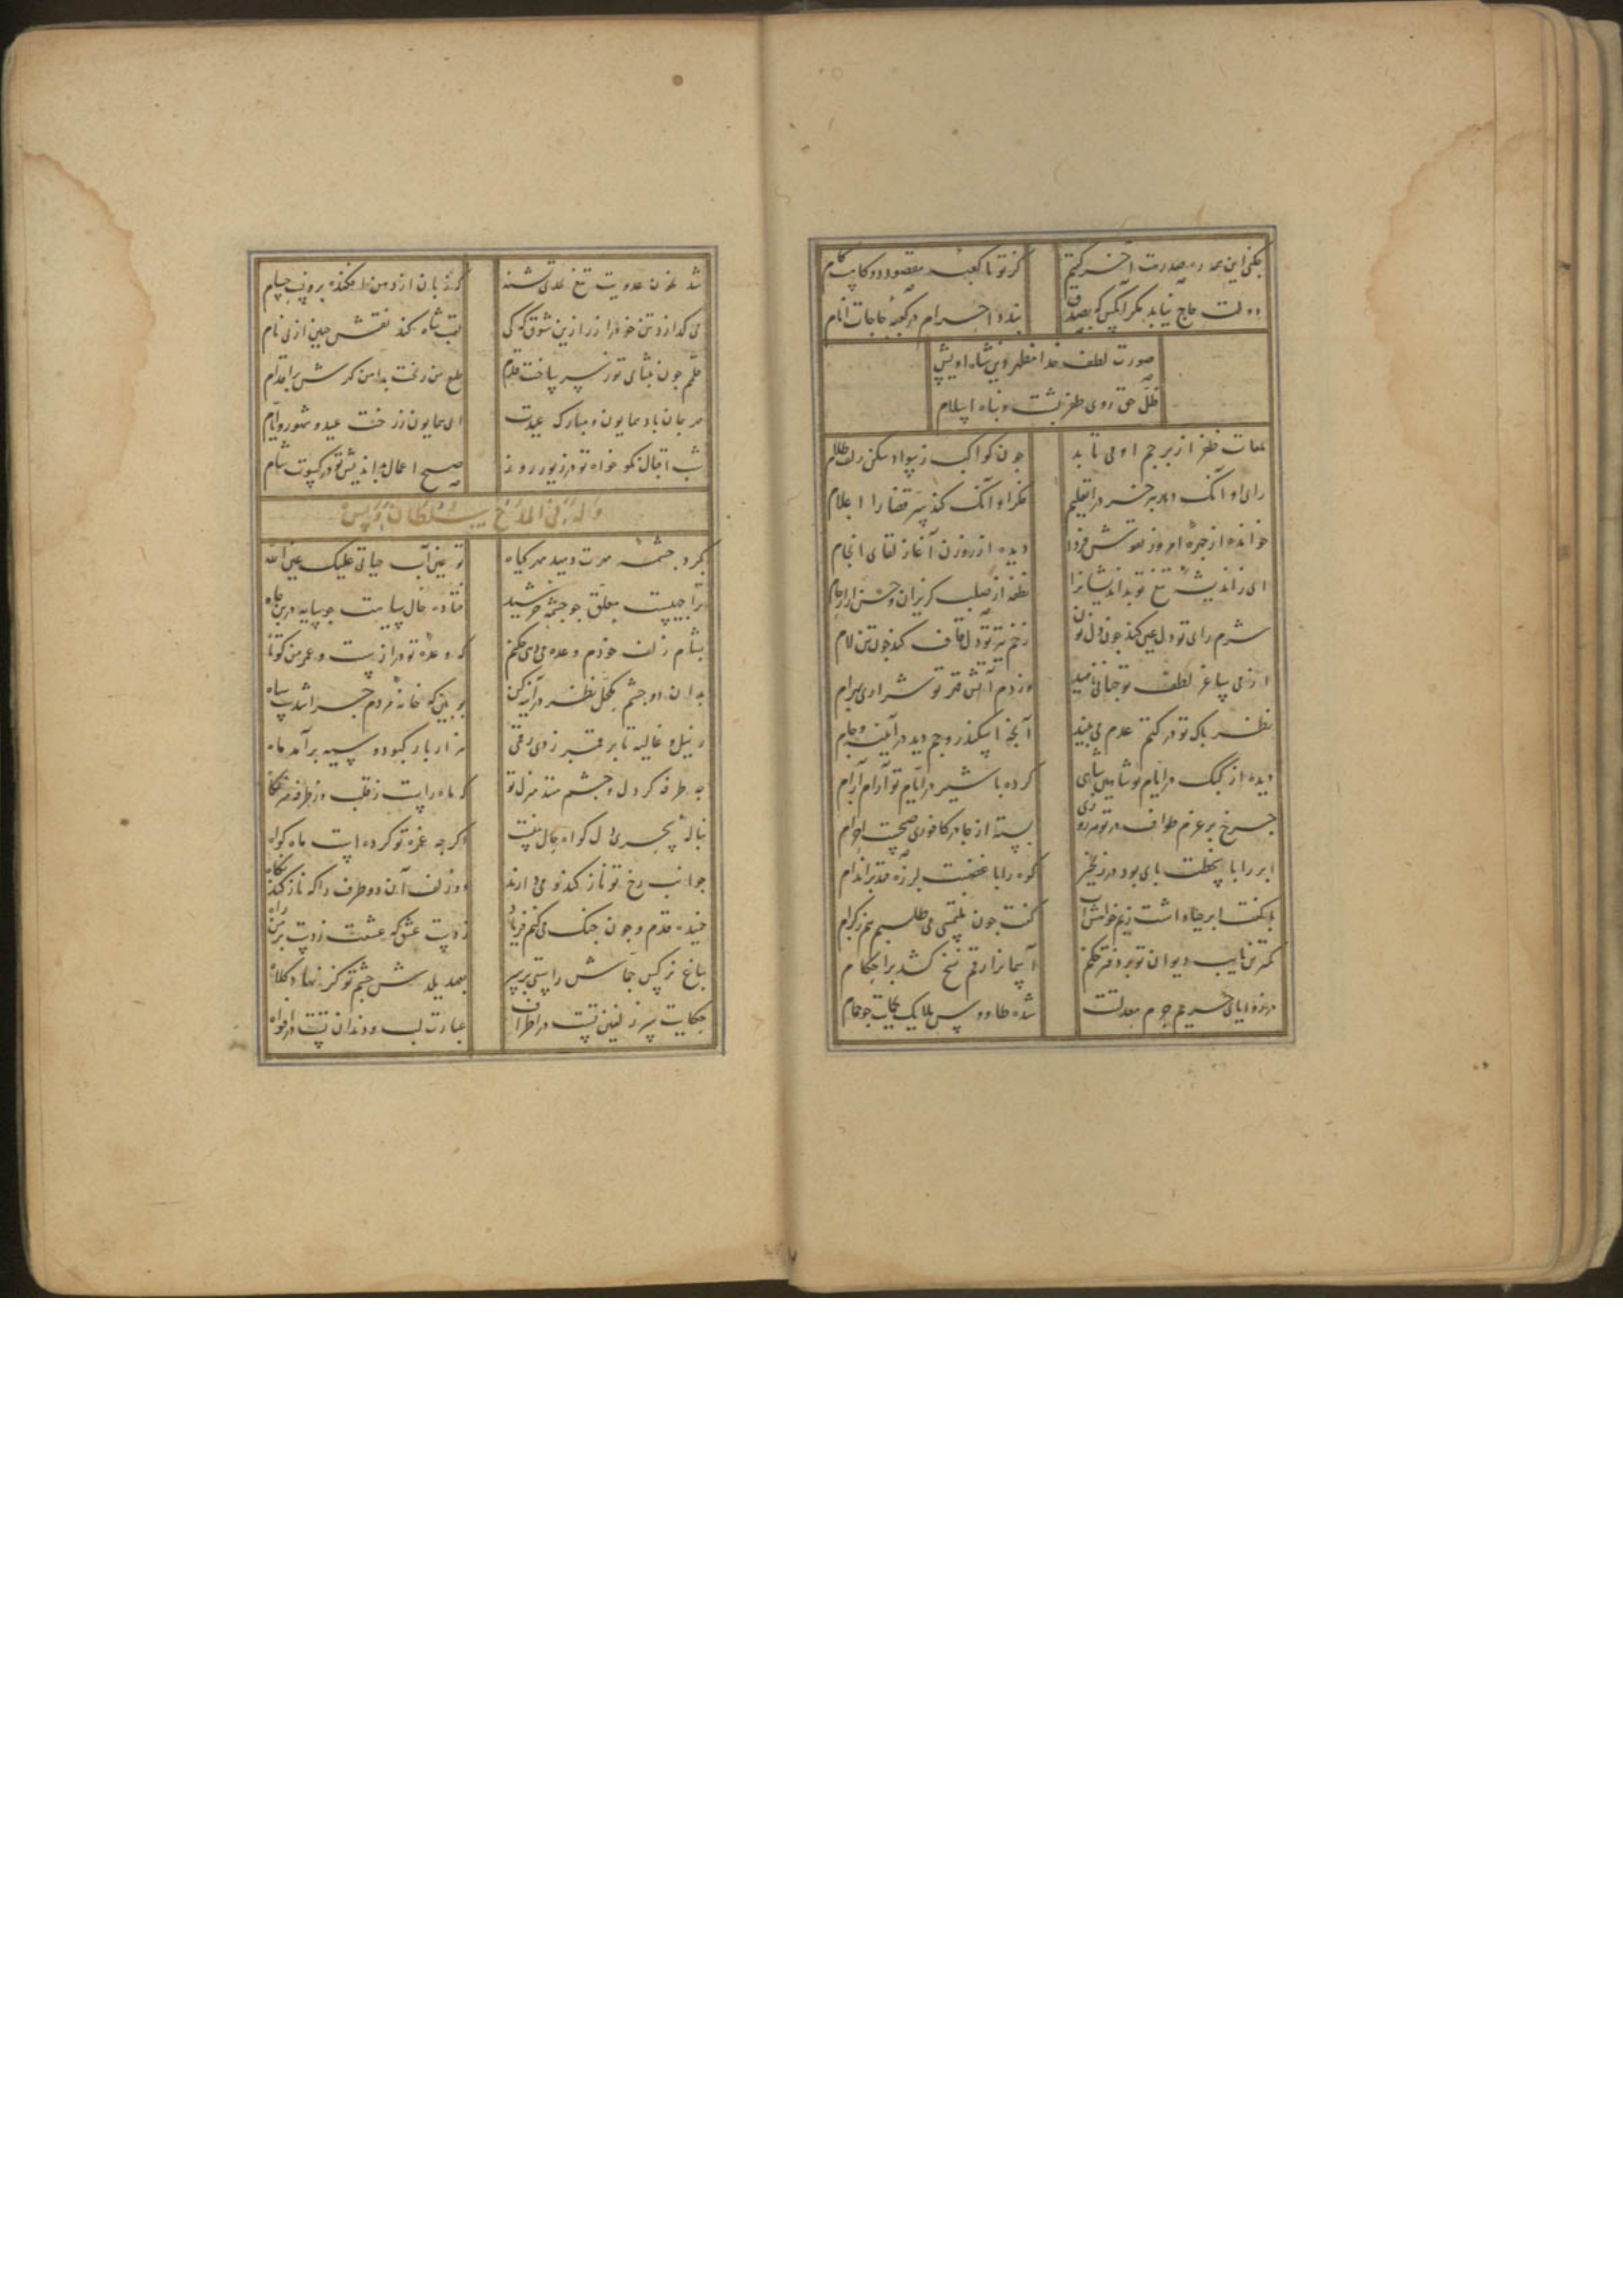 بکنی این همه ره صدرت آخر کیتم کز تو تا کعبه مقصود دو کامست کام
دولت حاج نیابد مکر آنکس که بصدق بندد احرام در کعبه حاجات انام
صورت لطف خدا مظهر دین شاه اویس
ظل حق روی ظفر پشت و پناه اسلام
لمعات ظفر از پرجم او می تابد جون کواکب ز سواد شکن زلف ظلام
رای او آنک دهد خسرو را تعلیم فکر او آنک کند سر قضا را اعلام
خوانده از جهره امروز نقوش فردا دیده از روزن آغاز لقای انجام
ای ز اندیشه تیغ تو بداندیشانرا نطفه از صلب کریزان و خشن ارحام
شرم رای تو دل عین کند جون دل نون زخم تیر تو دل قاف کند جون تن لام
از می ساغر لطف تو جهانی وز دم آتش قهر تو شراری بهرام
نظر باک تو در کتم عدم می بیند آنجه اسکندر و جم دید در آیینه و جام
دیده از کبک در ایام تو شاهین بازی کرده با شیر در ایام تو آرام آرام
جرخ بر عزم طواف در تو هر روزی بسته از جادر کافوری صبحت احرام
ابر را با سخطت بای بود در زنجیر کوه را با غضبت لرزه فتد بر اندام
با کفت ابر حیا داشت زیم خواهش آب کفت جون ملتمسی می طلبم هم ز کرام
کمترین نایب دیوان تو بر دفتر حکم آسمانرا رقم نسخ کشد بر احکام
در هوای حریم حرم معدلتت شده طاووس ملایک بحمایت جو حمام
شد بخون عدویت تیغ تشنه که زبان از دهن افکنده برونست حسام
می کدازد تن خود را زر ازین شوق که کی لقب شاه کند نقش جبین از پی نام
قلمم جون بثنای تو ز سر ساخت قدم طبع من ریخت بدامن کهرش بر اقدام
مهرجان باد همایون و مبارک عیدت ای همایون ز رخت عید و شهور و ایام
شب اقبال نکو خواه تو در زیور روز صبح اعمال بداندیش تو در کسوت شام
وله فی المدح سلطان اویس
بکرد جشمه مهرت دمید مهر کیاه تو عین آب حیاتی علیک عین الله
ترا جهیست معلق جو جشمه خرشید فتاده خال سیاهت جو سایه در بن جاه
بشام زلف خودم وعده می دهی جکنم که وعده تو درازست و عمر من کوتاه
بدان دو جشم مکحل نظر در آینه کن ببین که خانه مردم جرا شدست سیاه
ز نیل و غالیه تا بر قمر زدی رقمی هزار بار کبود و سیه برآمد ماه
جه طرفه کر دل و جشم منند منزل تو که ماه راست ز قلب و ز طرفه منزلکاه
بناله سحری دل کواه حال منست اکرجه غمزه تو کرده است ماه کواه
جوانب رخ تو نازکند نومی دارند دو زلف آن دو طرف را که نازکند نکاه
خمیده قدم و جون جنک می کنم فریاد ز دست عشق که عشقت زدست بر من راه
بباغ نرکس جماش راستی بر سر بعهد یلدش جشم تو کژ نهاد کلاه
حکایت سر زلفین تست در اطراف عبارت لب و دندان تست در افواه